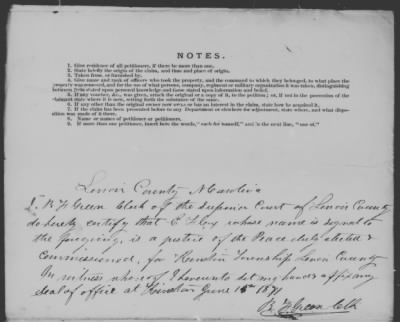 NOTES.
1. Give residence of all petitioners, if there be more than one.
2. State briefly the origin of the claim, and time and place of origin.
3. Taken from, or furnished by.
4. Give name and rank of officer who took the property, and the command to which they belonged, to what place the
property was removed, and for the use of what persons, company, regiment or military organization it was taken, distinguishing
between facts stated upon personal knowledge and those stated upon information and belief.
5. If any voucher, &c., was given, attach the original or a copy of it, to the petition; or, if not in the possession of the
claimant state where it is now, setting forth the substance of the same.
6. If any other than the original owner now owns or has an interest in the claim, state how he acquired it.
7. If the claim has been presented before to any Department or elsewhere for adjustment, state where, and what dispo-
sition was made of it there.
8. Name or names of petitioner or petitioners.
9. If more than one petitioner, insert here the words, "each for himself," and in the next line, "one of."
Lenoir County N Carolina
I. B F Green Clerk of the Superior Court of Lenoir County
do hereby certify that whose name is signed to
the foregoing, is a justice of the Peace duly elected &
Commissioned, for Kinston Township Lenoir County
In witness whereof I hereunto set my hand & affix my
seal of office at Kinston June 1871
B. F. Green Clk